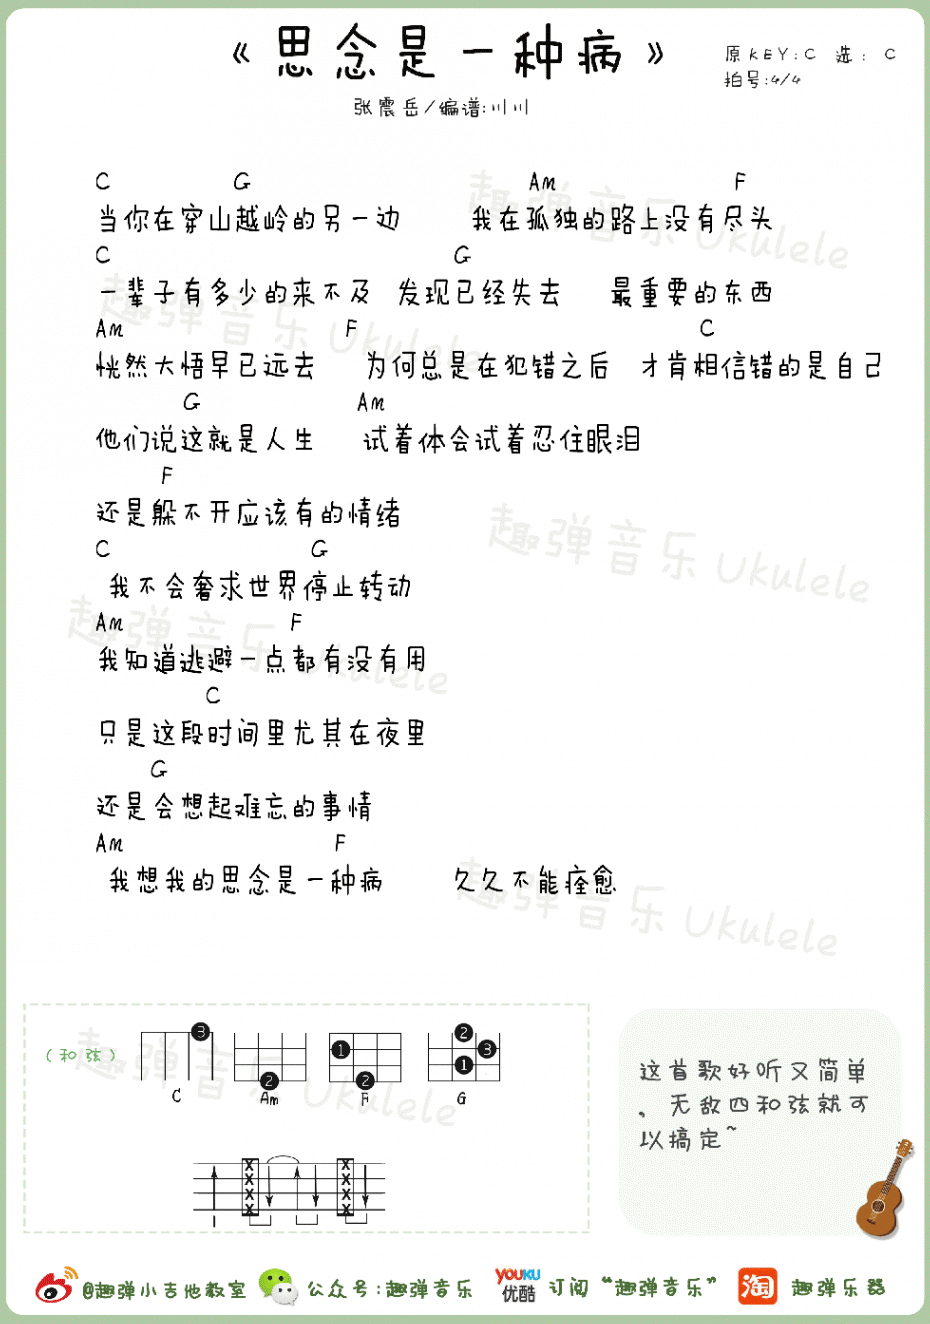 《思念是一种病》
原KEY:C 选: C
拍号:4/4
张震岳/编谱:川川
C G Am F
当你在穿山越岭的另一边 我在孤独的路上没有尽头
C G
一辈子有多少的来不及 发现已经失去 最重要的东西
Am F C
恍然大悟早已远去 为何总是在犯错之后 才肯相信错的是自己
G Am
他们说这就是人生 试着体会试着忍住眼泪
F
还是躲不开应该有的情绪
C G
我不会奢求世界停止转动
Am F
我知道逃避一点都有没有用
C
只是这段时间里尤其在夜里
G
还是会想起难忘的事情
Am F
我想我的思念是一种病 久久不能痊愈
趣弹音乐 Ukulele
趣弹音乐 Ukulele
趣弹音乐 Ukulele
趣弹音乐 Ukulele
趣弹音乐 Ukulele
趣弹音乐 Ukulele
(和弦)
3 2 1 2 2 3 1
C Am F G
X X
X X
X X
X X
这首歌好听又简单
，无敌四和弦就可
以搞定~
@趣弹小吉他教室 公众号:趣弹音乐 YOUKU 优酷 订阅“趣弹音乐” 淘 趣弹乐器